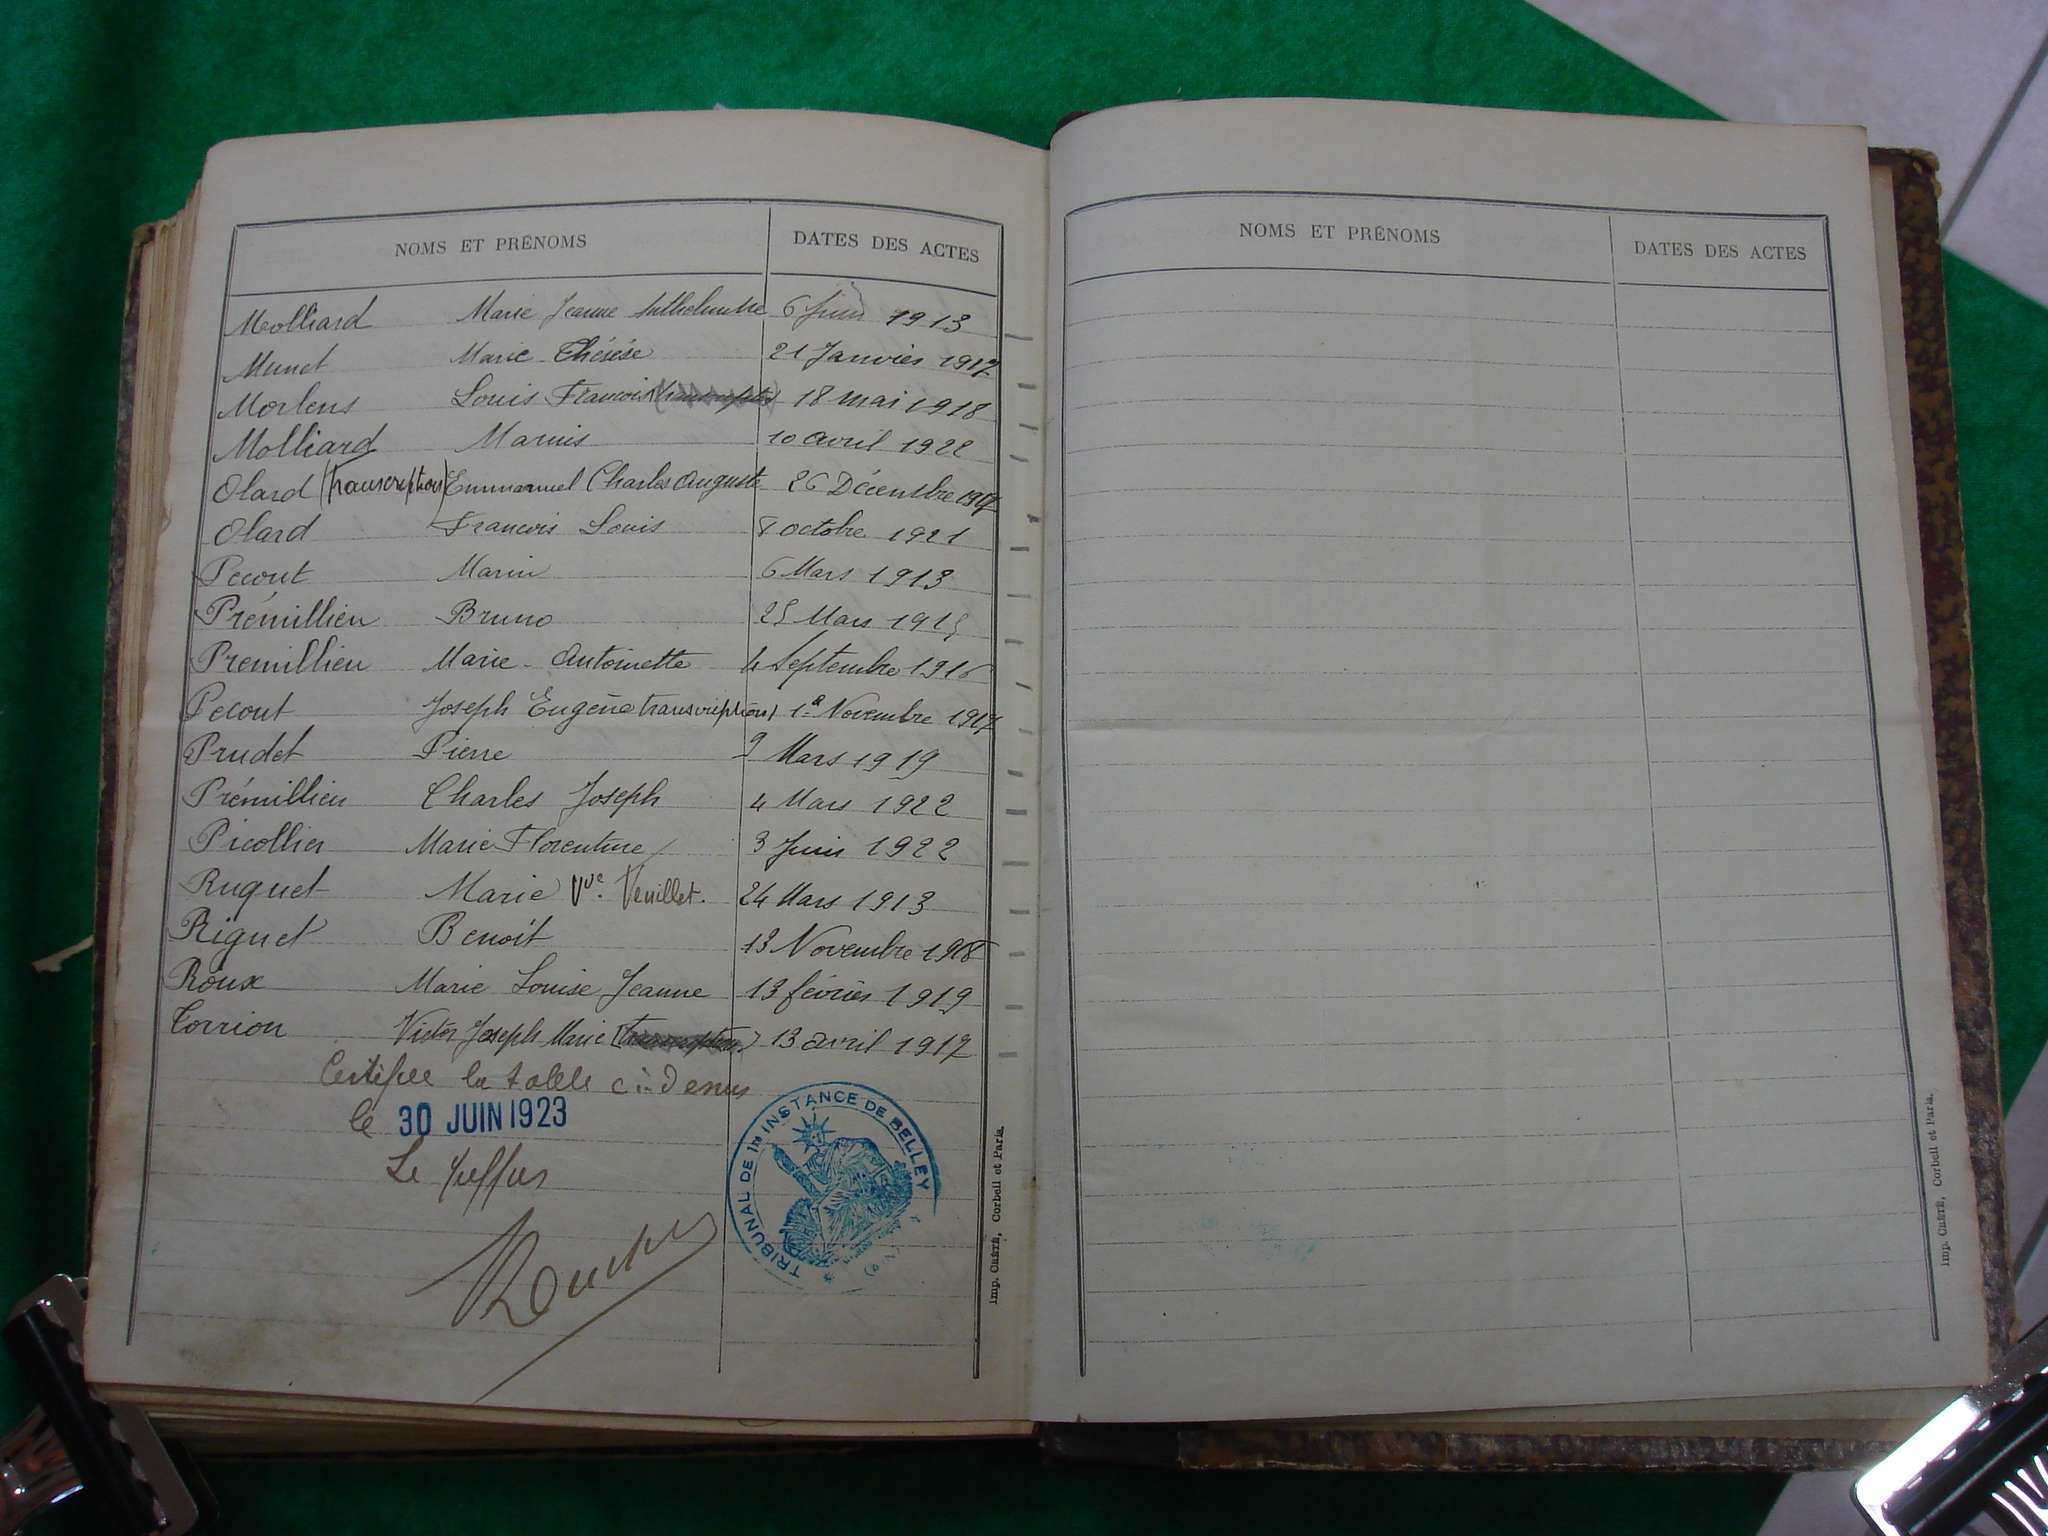 NOMS ET PRÉNOMS DATES DES ACTES
Molliard Marie Jeanne 6 Juin 1913
Munet Marie Thérèse 21 Janvier 1917
Morlens Louis Francois 18 mai 1918
Molliard Marius 10 avril 1922
Olard (transcription) Emmanuel Charles Auguste 26 Décembre 1917
Olard Francois Louis 8 octobre 1921
Pecout Marin 6 Mars 1913
Prémillieu Bruno 25 Mars 1915
Premillieu Marie-Antoinette 4 Septembre 1916
Pecout Joseph Eugène transcription) 1er Novembre 1917
Prudet Pierre 9 Mars 1919
Prémillieu Charles Joseph 4 Mars 1922
Picollier Marie Florentine 3 Juin 1922
Ruguet Marie Vve Veuillet. 24 Mars 1913
Riguet Benoit 13 Novembre 1918
Roux Marie Louise Jeanne 13 février 1919
Torrion Victor Joseph Marie (transcription) 13 avril 1917
Certifiée la table ci-Dessus
le 30 JUIN 1923
Le Greffier
TRIBUNAL DE 1re INSTANCE DE BELLEY
(AIN)
Imp. CRÉTÉ, Corbeil et Paris.
NOMS ET PRÉNOMS DATES DES ACTES
Imp. CRÉTÉ, Corbeil et Paris.